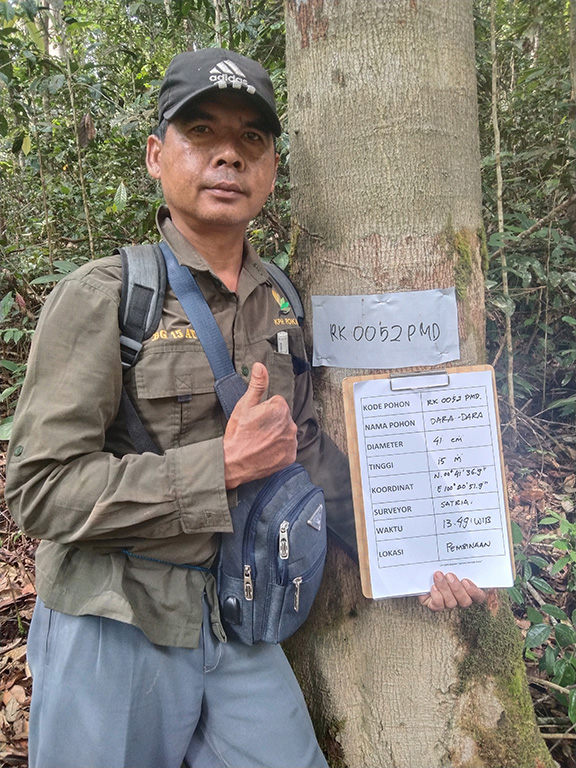 adidas
RK 0052 PMD
KODE POHON RK 0052 PMD.
NAMA POHON DARA-DARA
DIAMETER 41 cm
TINGGI 15 M
KOORDINAT
SURVEYOR SATRIA.
WAKTU 13.49 WIB
LOKASI PEMBINAAN